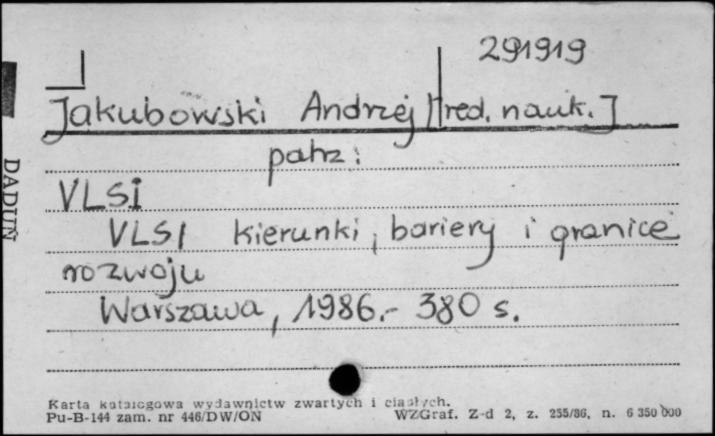 291919
Jakubowski Andrzej [red. nauk.]
patrz:
VLSI
VLSI kierunki, bariery i granice
rozwoju
Warszawa, 1986.- 380 s.
DADUŃ
Karta katalogowa wydawnictw zwartych i ciągłych.
Pu-B-144 zam. nr 446/DW/ON WZGraf. Z-d 2, z. 255/86, n. 6 350 000